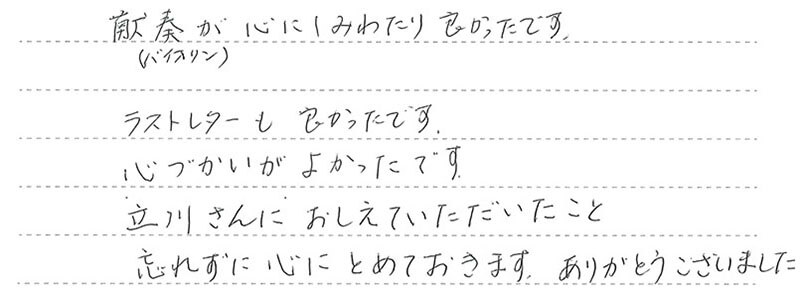 献奏が心にしみわたり良かったです。
(バイオリン)
ラストレターも良かったです。
心づかいがよかったです。
立川さんにおしえていただいたこと
忘れずに心にとめておきます。ありがとうございました